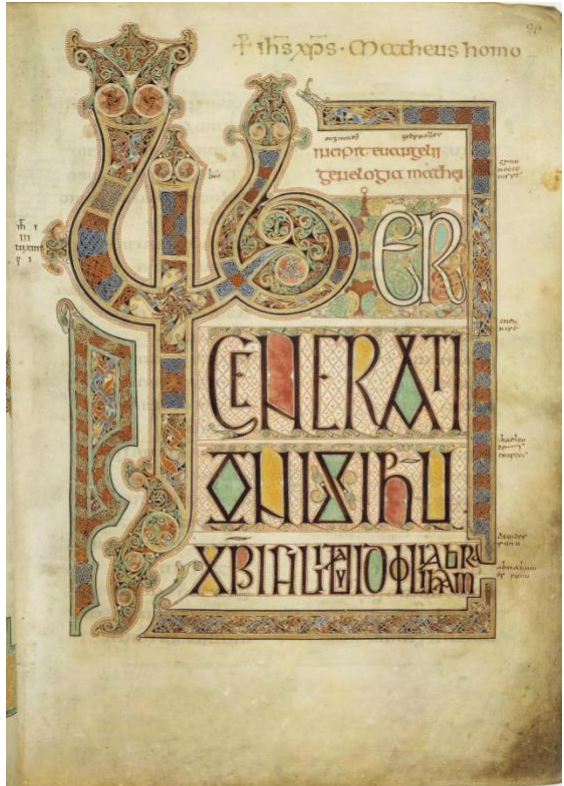 + ihs xps · Matheus homo
incipit evangelii
genelogia mathei
LIBER
GENERATI
ONIS IHU
XPI FILII DAVID FILII ABRAHAM